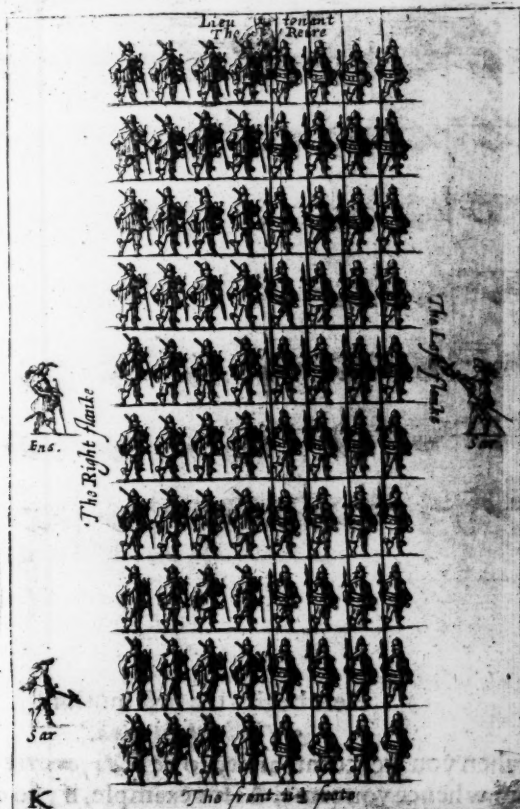 Lieu tenant
The Reire
The Left flanke
Ens.
The Right flanke
Ser
Sar
K The front